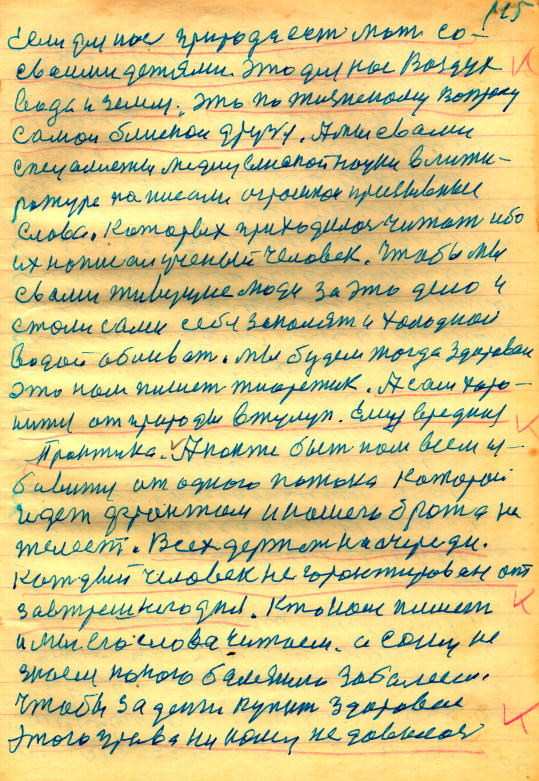 145
Если для нас природа ест мат со-
своими детями. Это для нас Воздух
Вода и земля, это по жизненому вопросу
самои близкои друзя. А мы свами
специалисты медицынской науки влити-
ратуре написали огромное призывные
слова. Которых приходилос читат ибо
их написал ученый человек. Чтобы мы
свами живущие люди за это дело и
стали сами себя заколят и холодной
водой обливат. Мы будем тогда здоровае
это нам пишет тиоретик. А сам хоро-
нится от природы втулуп. Ему вредная
Практика. А какже быт нам всем из-
бавится от одного потока который
идет фронтом и нашего брата не
жалеет. Всех держит на очереди.
каждый человек не гарантирован от
завтрешнего дня. Кто нам пишет
и мы его слова читаем. а сами не
знаем какою болезнию заболеем.
Чтобы за денги купит здоровае
Этого права ни кому не довалос